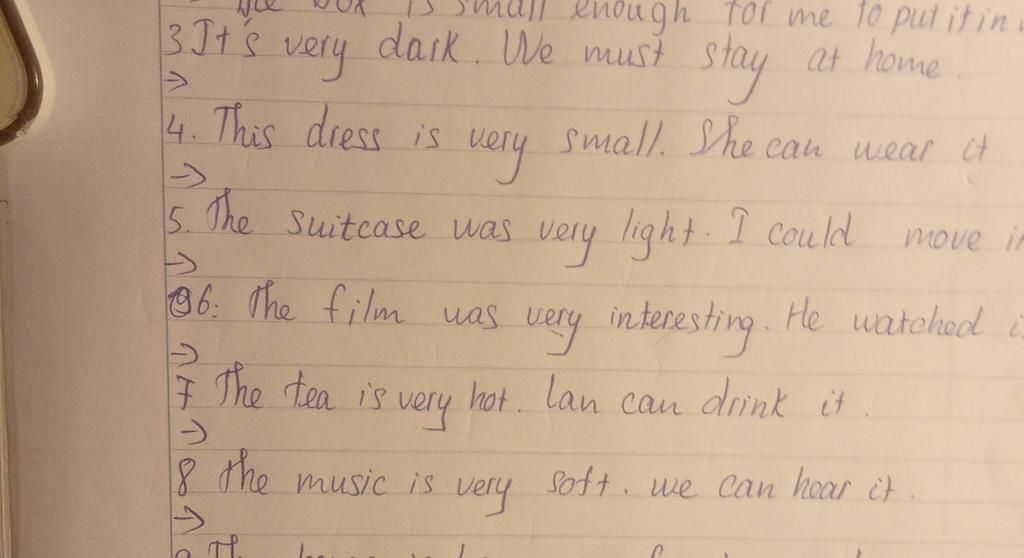 box is small enough for me to put it in
3 It's very dark. We must stay at home.
→
4. This dress is very small. She can wear it
→
5. The suitcase was very light. I could move it
→
6. The film was very interesting. He watched
→
7 The tea is very hot. Lan can drink it.
→
8 The music is very soft. we can hear it.
→
9 The